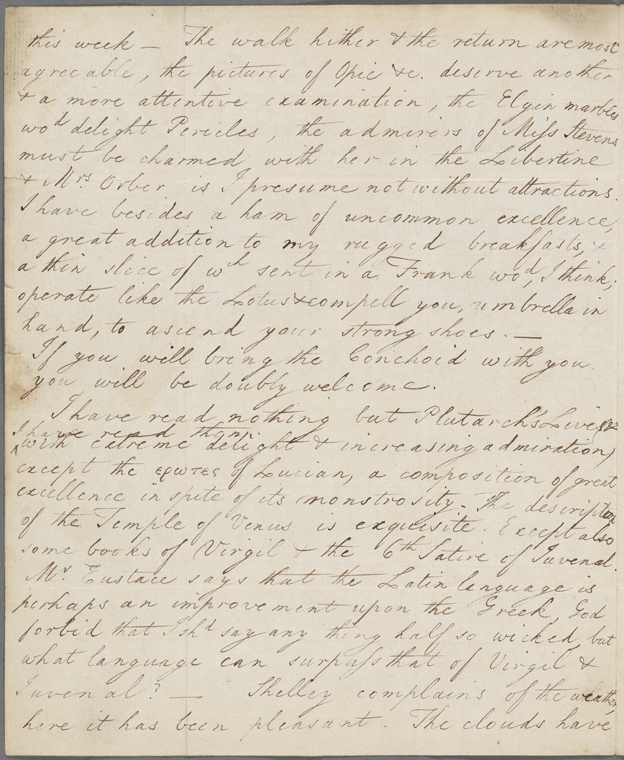 this week — The walk hither & the return are most
agreeable, the pictures of Opie &c. deserve another
& a more attentive examination, the Elgin marbles
wod delight Pericles, the admirers of Miss Stevens
must be charmed with her in the Libertine
& Mrs Orber is I presume not without attractions.
I have besides a ham of uncommon excellence,
a great addition to my rugged breakfasts, &
a thin slice of wh sent in a Frank wod, I think,
operate like the Lotus & compell you, umbrella in
hand, to ascend your strong shoes. —
If you will bring the Conchoid with you
you will be doubly welcome.
I have read nothing but Plutarch's Lives (&
I have read them
with extreme delight & increasing admiration)
except the ερωτες of Lucian, a composition of great
excellence in spite of its monstrosity. The description
of the Temple of Venus is exquisite. Except also
some books of Virgil & the 6th Satire of Juvenal.
Mr Eustace says that the Latin language is
perhaps an improvement upon the Greek, God
forbid that I shd say any thing half so wicked, but
what language can surpass that of Virgil &
Juvenal? — Shelley complains of the weather,
here it has been pleasant. The clouds have